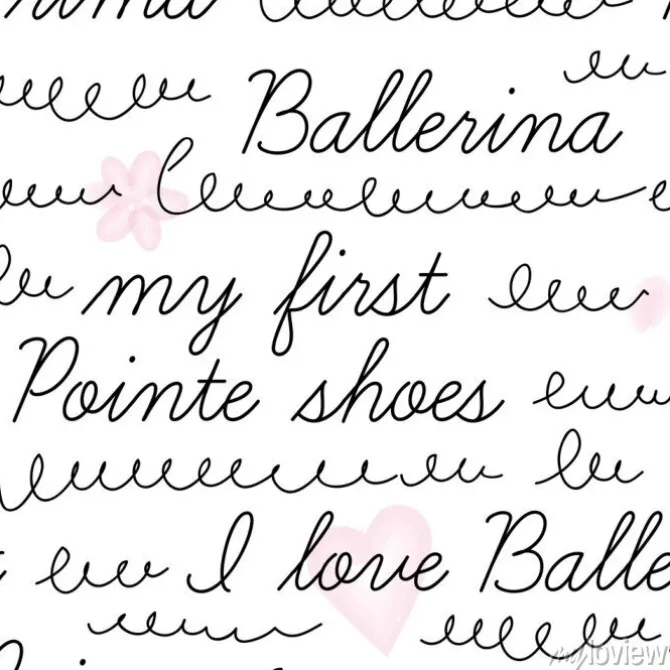 Ballerina
my first
Pointe shoes
I love Balle
myloview